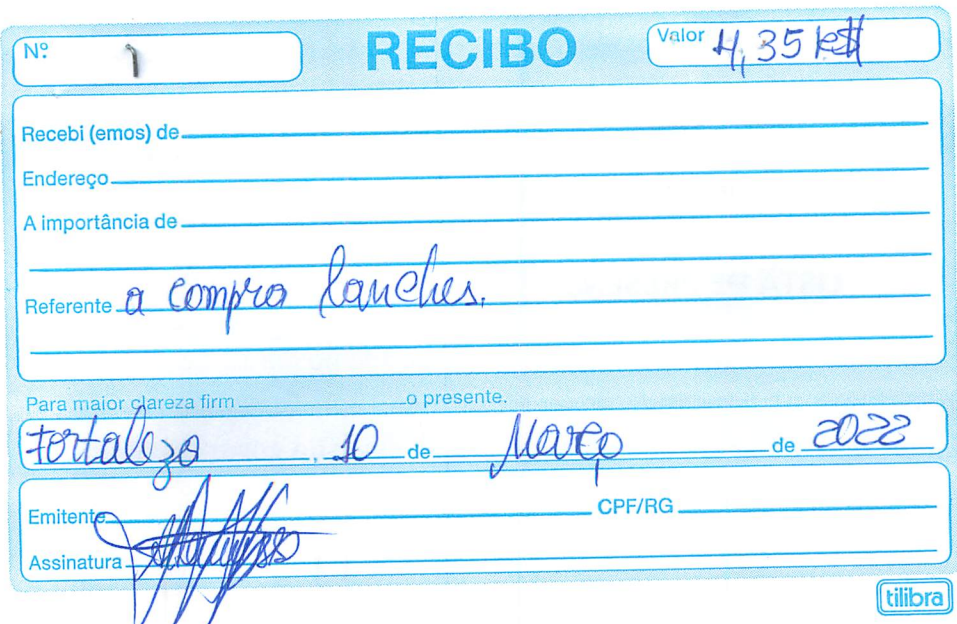 Nº
RECIBO
Valor 4,35
Recebi (emos) de
Endereço
A importância de
Referente a compra lanches.
Para maior clareza firm o presente.
Fortaleza, 10 de Março de 2022
Emitente CPF/RG
Assinatura
tilibra